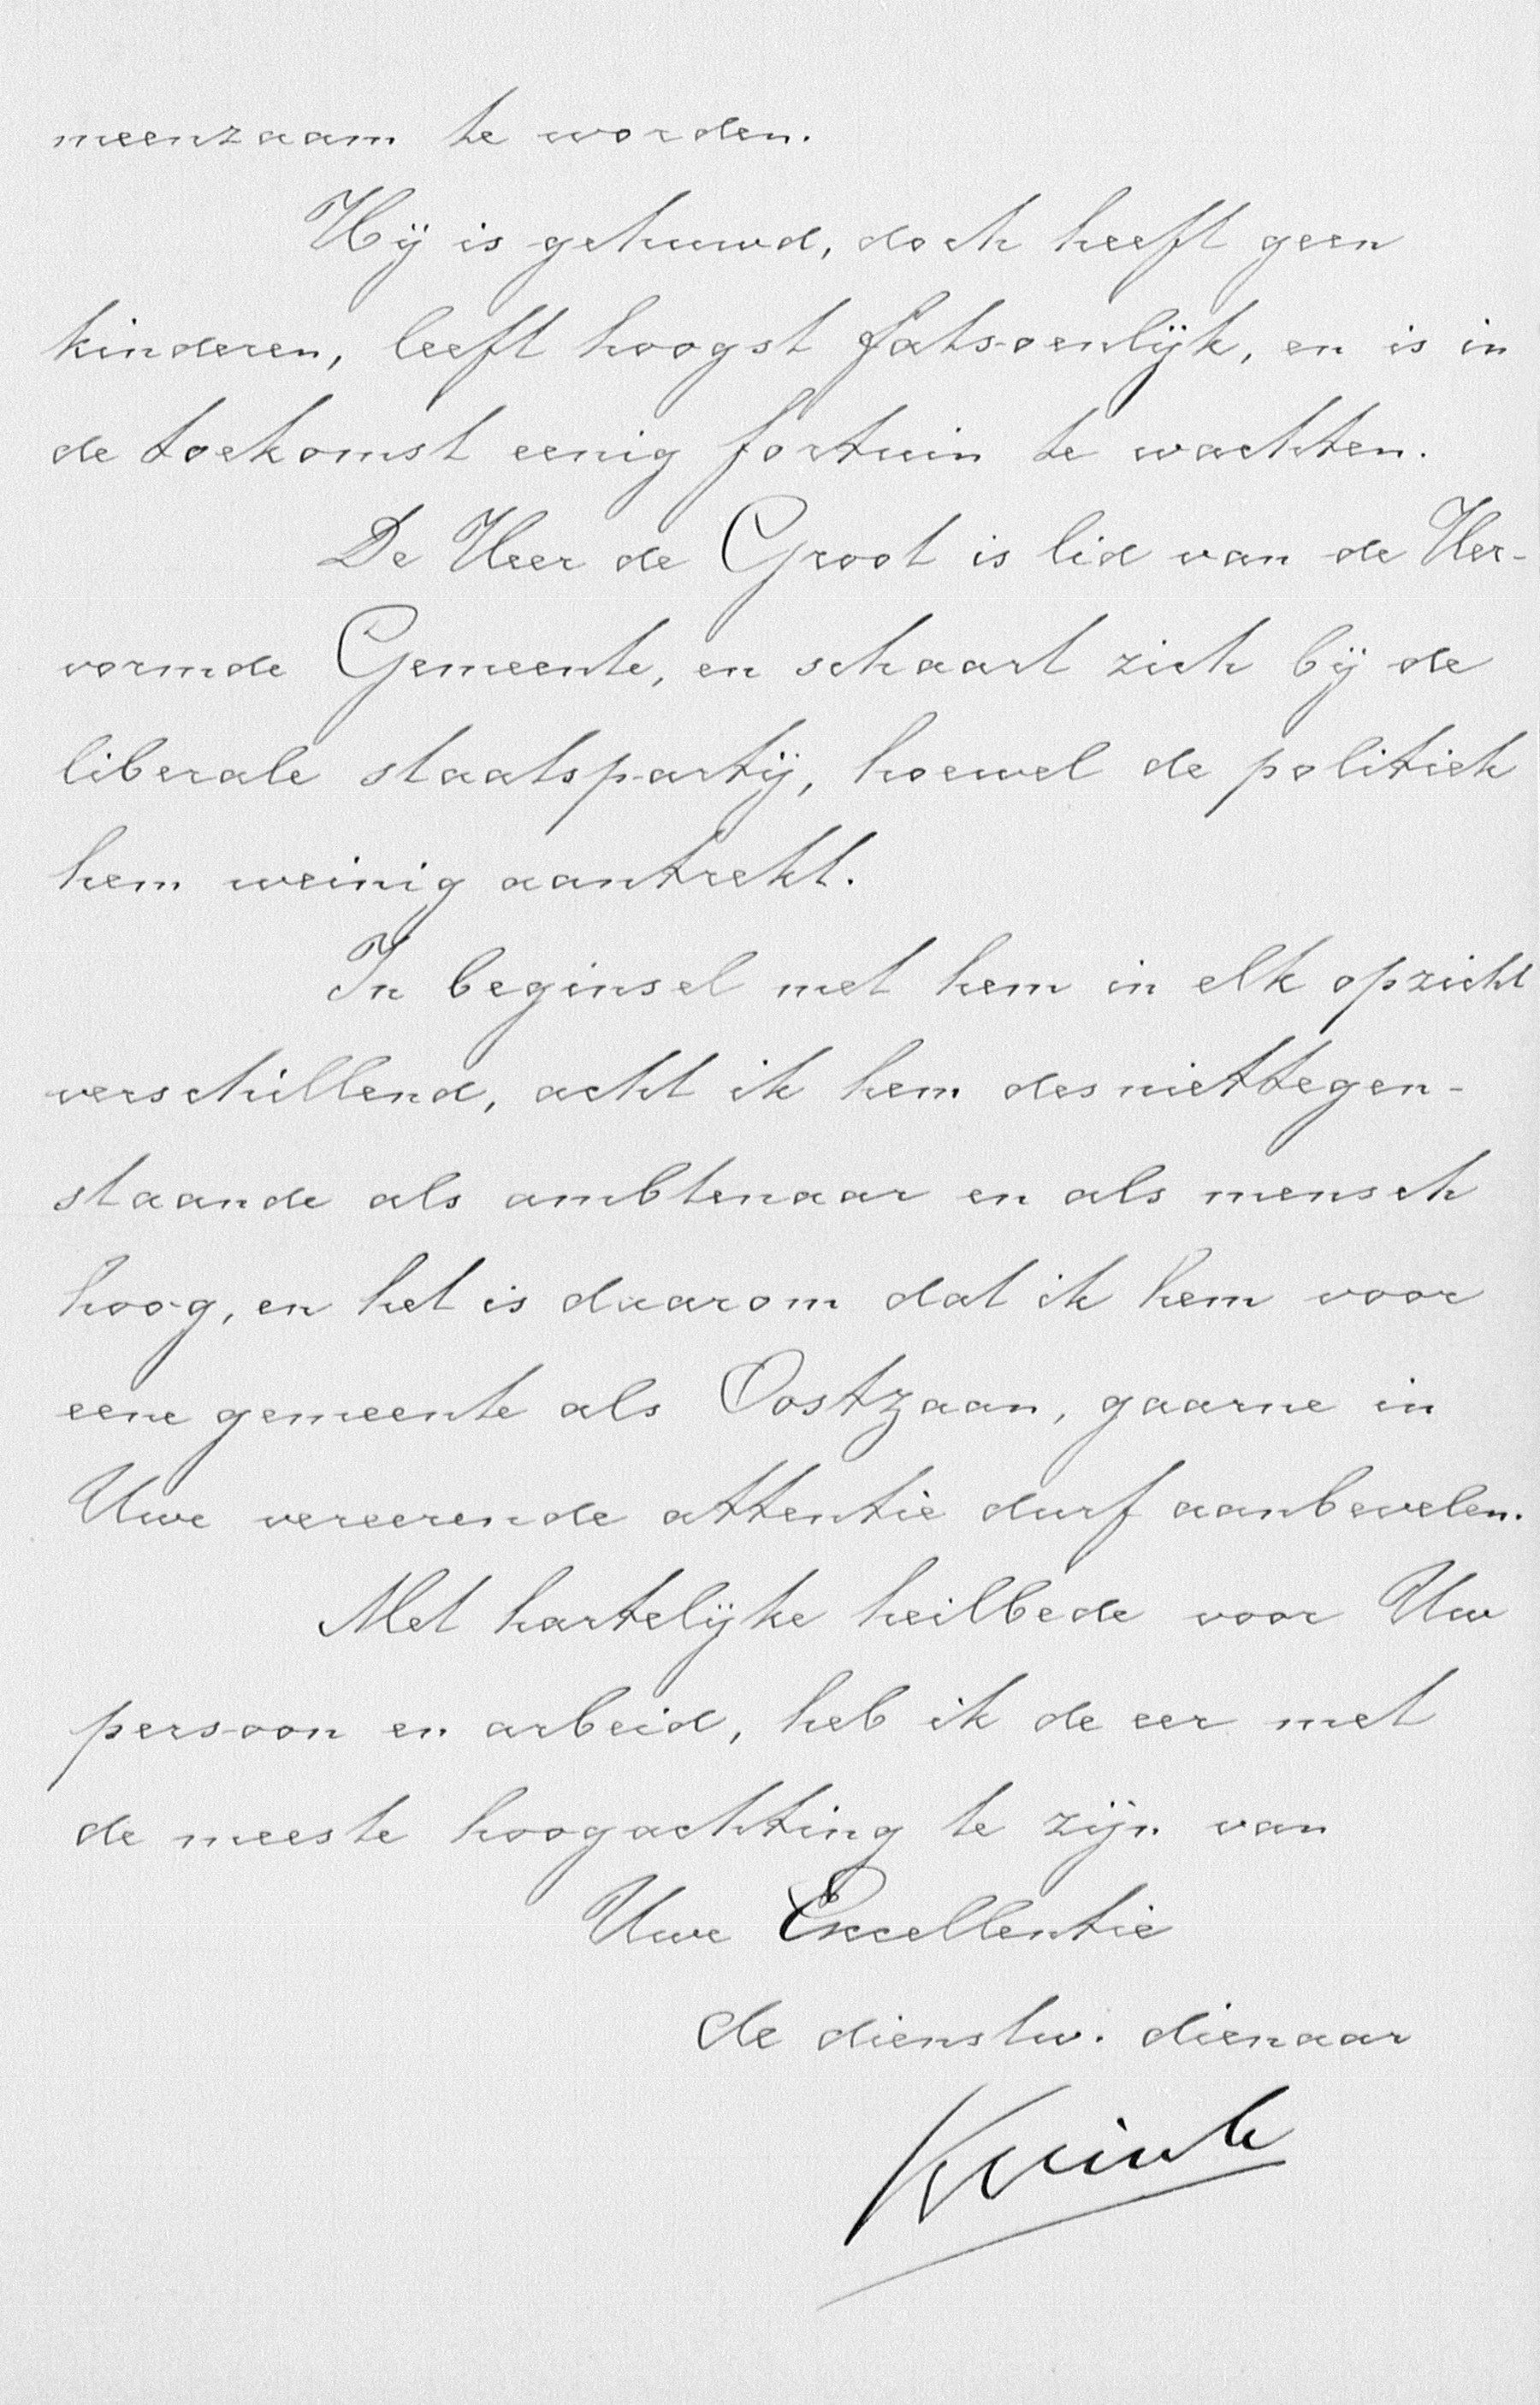 meenzaam te worden.
Hij is gehuwd, doch heeft geen
kinderen, leeft hoogst fatsoenlijk, en is in
de toekomst eenig fortuin te wachten.
De Heer de Groot is lid van de Her-
vormde Gemeente, en schaart zich bij de
liberale staatspartij, hoewel de politiek
hem weinig aantrekt.
In beginsel met hem in elk opzicht
verschillend, acht ik hem desniettegen-
staande als ambtenaar en als mensch
hoog, en het is daarom dat ik hem voor
eene gemeente als Oostzaan, gaarne in
Uwe vereerende attentie durf aanbevelen.
Met hartelijke heilbede voor Uw
persoon en arbeid, heb ik de eer met
de meeste hoogachting te zijn van
Uwe Excellentie
de dienstw. dienaar